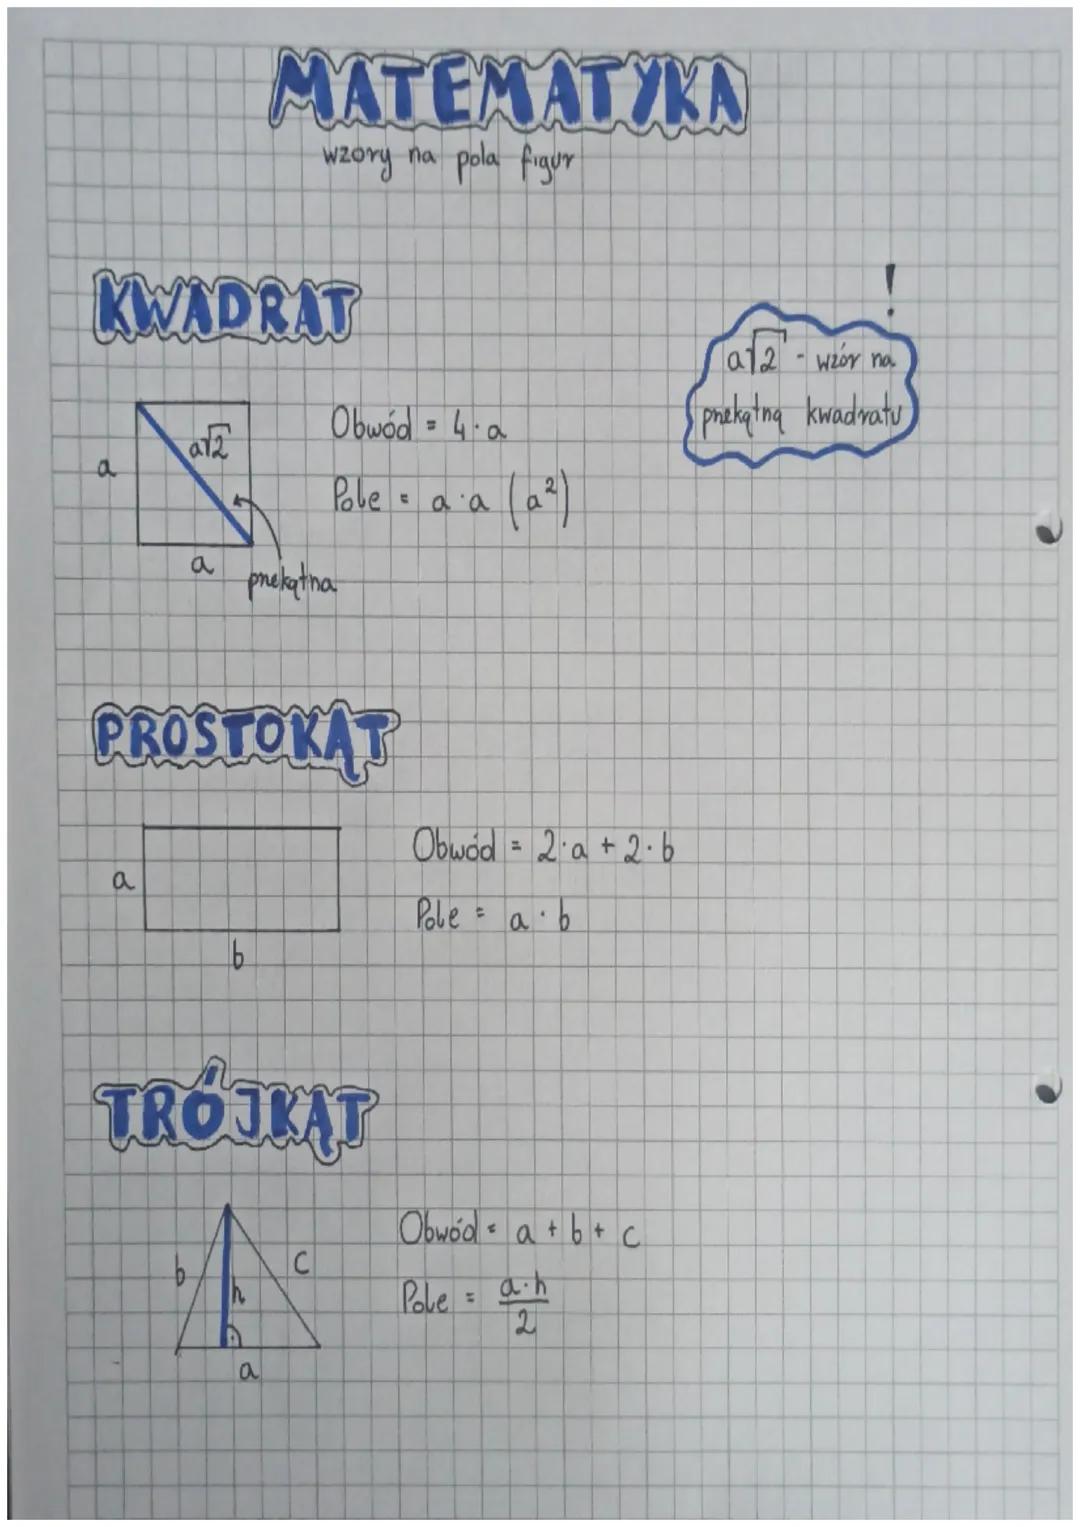 MATEMATYKA
wzory na pola figur
KWADRAT
!
a√2 - wzór na
przekątną kwadratu
a√2
a
a
przekątna
Obwód = 4·a
Pole = a·a (a²)
PROSTOKĄT
a
b
Obwód = 2·a + 2·b
Pole = a·b
TRÓJKĄT
b
c
h
a
Obwód = a + b + c
Pole = a·h
2